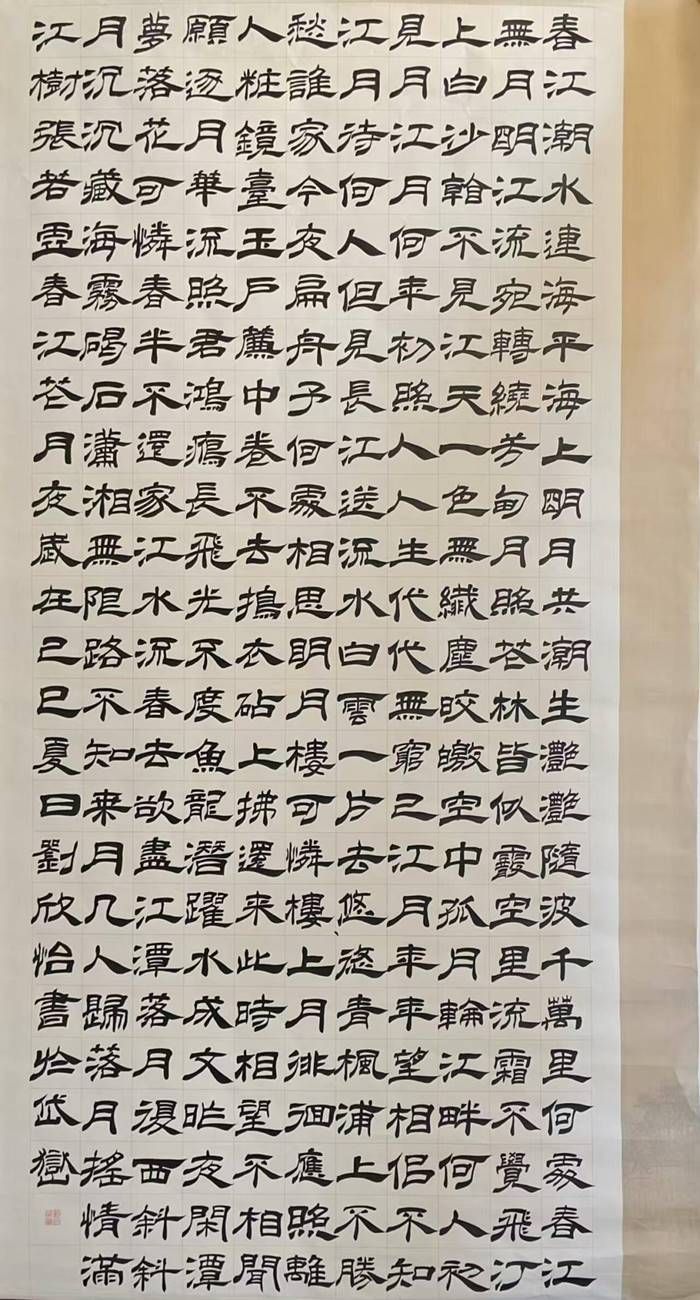 春江潮水連海平海上明月共潮生灧灧隨波千萬里何處春江
無月明江流宛轉繞芳甸月照花林皆似霰空里流霜不覺飛汀
上白沙看不見江天一色無纖塵皎皦空中孤月輪江畔何人初
見月江月何年初照人人生代代無窮已江月年年望相侣不知
江月待何人但見長江送流水白雲一片去悠悠青楓浦上不勝
愁誰家今夜扁舟子何處相思明月樓可憐樓上月徘徊應照離
人粧鏡臺玉戶簾中卷不去搗衣砧上拂還来此時相望不相聞
願逐月華流照君鴻鴈長飛光不度魚龍潛躍水成文昨夜閑潭
夢落花可憐春半不還家江水流春去欲盡江潭落月復西斜斜
月沉沉藏海霧碣石瀟湘無限路不知来月几人歸落月摇情滿
江樹張若虚春江花月夜歲在乙巳夏日劉欣怡書於岱嶽